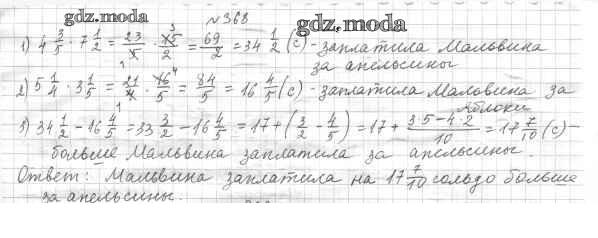 gdz.moda
№368
gdz.moda
1) 4 3/5 · 7 1/2 = 23/5 · 15/2 = 69/2 = 34 1/2 (с) - заплатила Мальвина
за апельсины
2) 5 1/4 · 3 1/5 = 21/4 · 16/5 = 84/5 = 16 4/5 (с) - заплатила Мальвина за
яблоки
3) 34 1/2 - 16 4/5 = 33 3/2 - 16 4/5 = 17 + (3/2 - 4/5) = 17 + (3·5-4·2)/10 = 17 7/10 (с) -
больше Мальвина заплатила за апельсины.
Ответ: Мальвина заплатила на 17 7/10 сольдо больше
за апельсины.